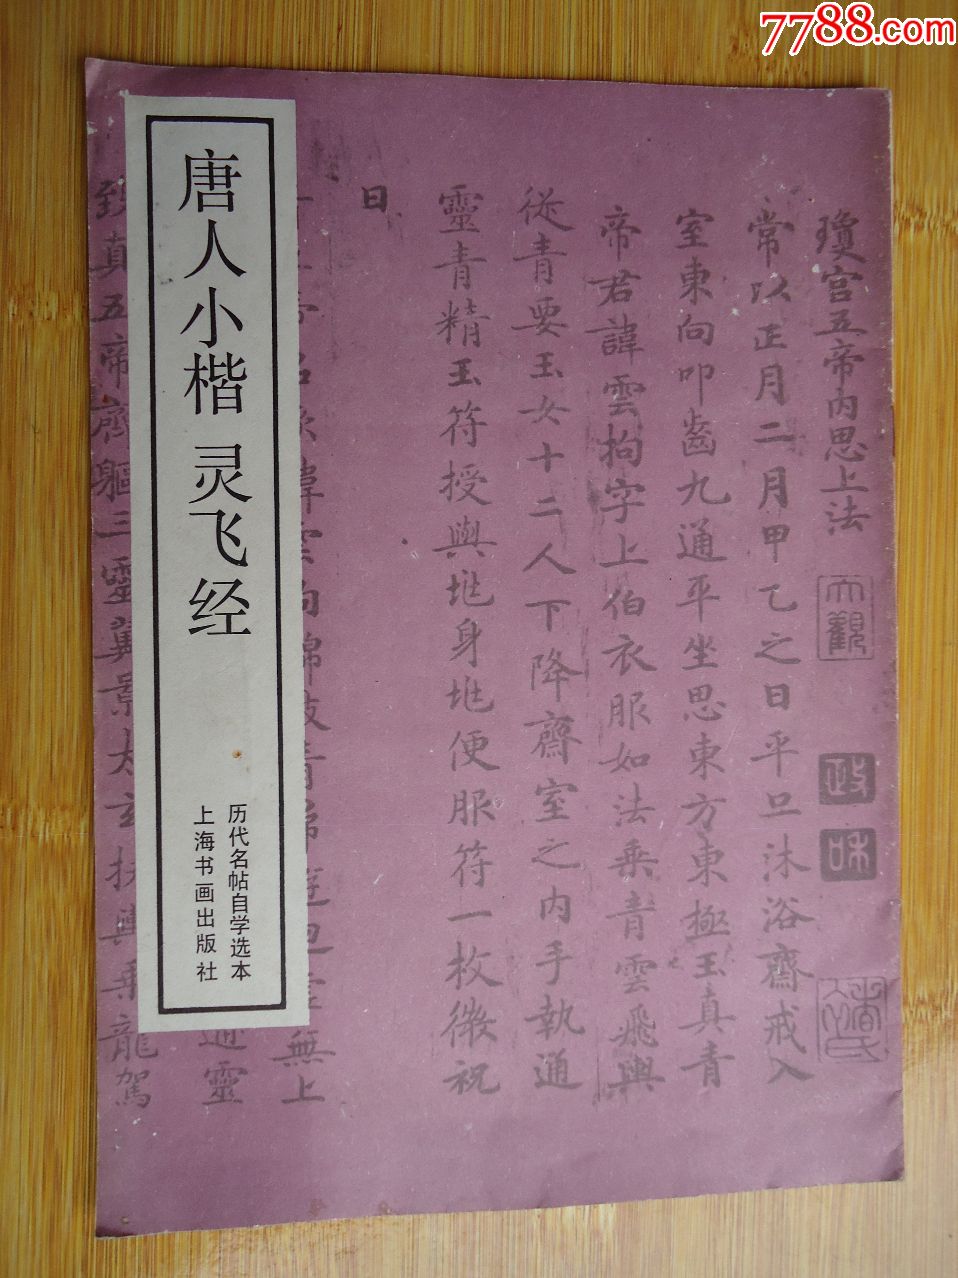 7788.com
唐人小楷 灵飞经
历代名帖自学选本
上海书画出版社
瓊宮五帝內思上法
常以正月二月甲乙之日平旦沐浴齋戒入
室東向叩齒九通平坐思東方東極玉真青
帝君諱雲拘字上伯衣服如法乘青雲飛輿
從青要玉女十二人下降齋室之內手執通
靈青精玉符授與兆身兆便服符一枚微祝
曰
無上
致真五帝齊軀三靈翼景太玄扶輿乘龍駕
大觀
政
和